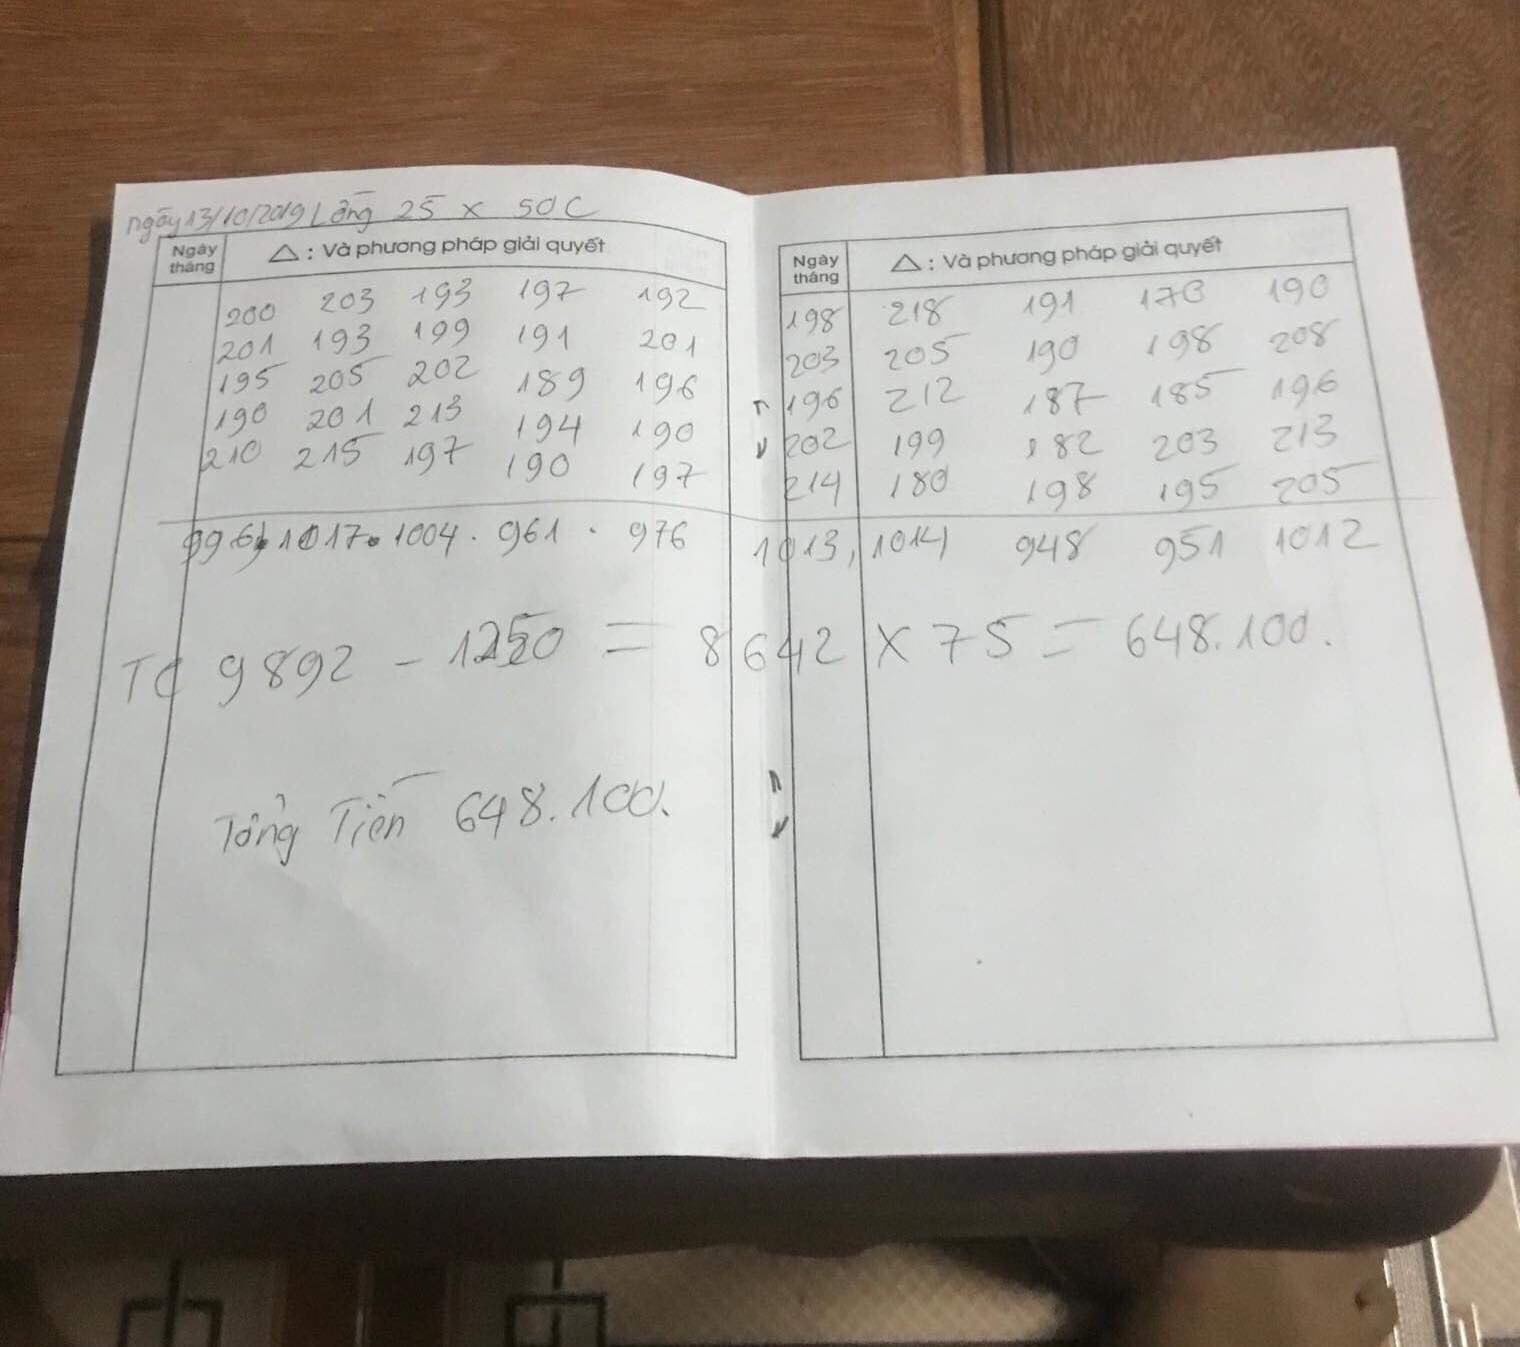 ngày 13/10/2019 Lồng 25 x 50C
Ngày tháng △: Và phương pháp giải quyết
200 203 193 197 192
201 193 199 191 201
195 205 202 189 196
190 201 213 194 190
210 215 197 190 197
996, 1017. 1004. 961. 976
Ngày tháng △: Và phương pháp giải quyết
198 218 191 170 190
203 205 190 198 208
196 212 187 185 196
202 199 182 203 213
214 180 198 195 205
1013, 1014 948 951 1012
TC 9892 - 1250 = 8642 x 75 = 648.100.
Tổng Tiền 648.100.